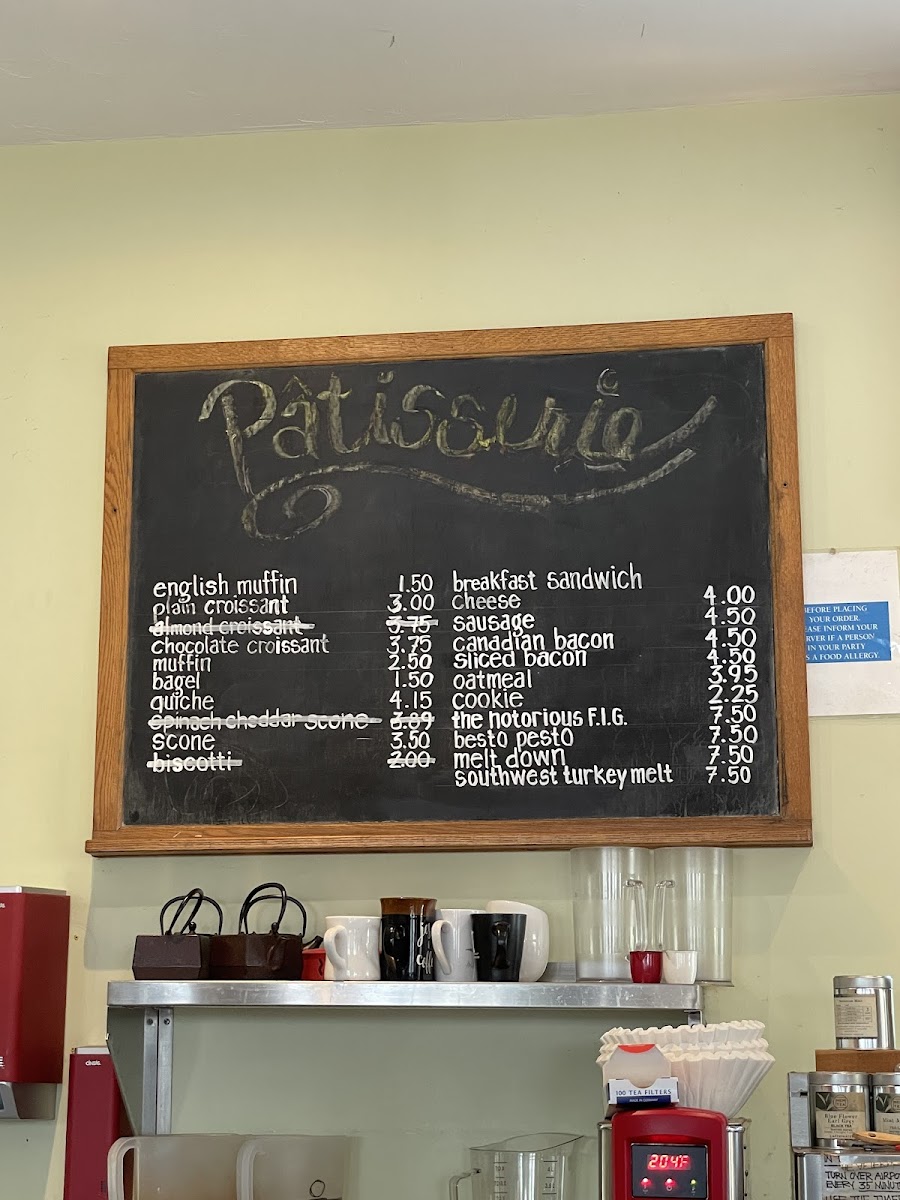 Pâtisserie
english muffin 1.50
plain croissant 3.00
almond croissant 3.75
chocolate croissant 3.75
muffin 2.50
bagel 1.50
quiche 4.15
spinach cheddar scone 3.89
scone 3.50
biscotti 2.00
breakfast sandwich
cheese 4.00
sausage 4.50
canadian bacon 4.50
sliced bacon 4.50
oatmeal 3.95
cookie 2.25
the notorious F.I.G. 7.50
besto pesto 7.50
melt down 7.50
southwest turkey melt 7.50
BEFORE PLACING
YOUR ORDER,
EASE INFORM YOUR
RVER IF A PERSON
IN YOUR PARTY
S A FOOD ALLERGY.
100 TEA FILTERS
MADE IN GERMANY
204°F
Blue Flower
Earl Grey
BLACK TEA
TURN OVER AIRPO
EVERY 35 MINUT